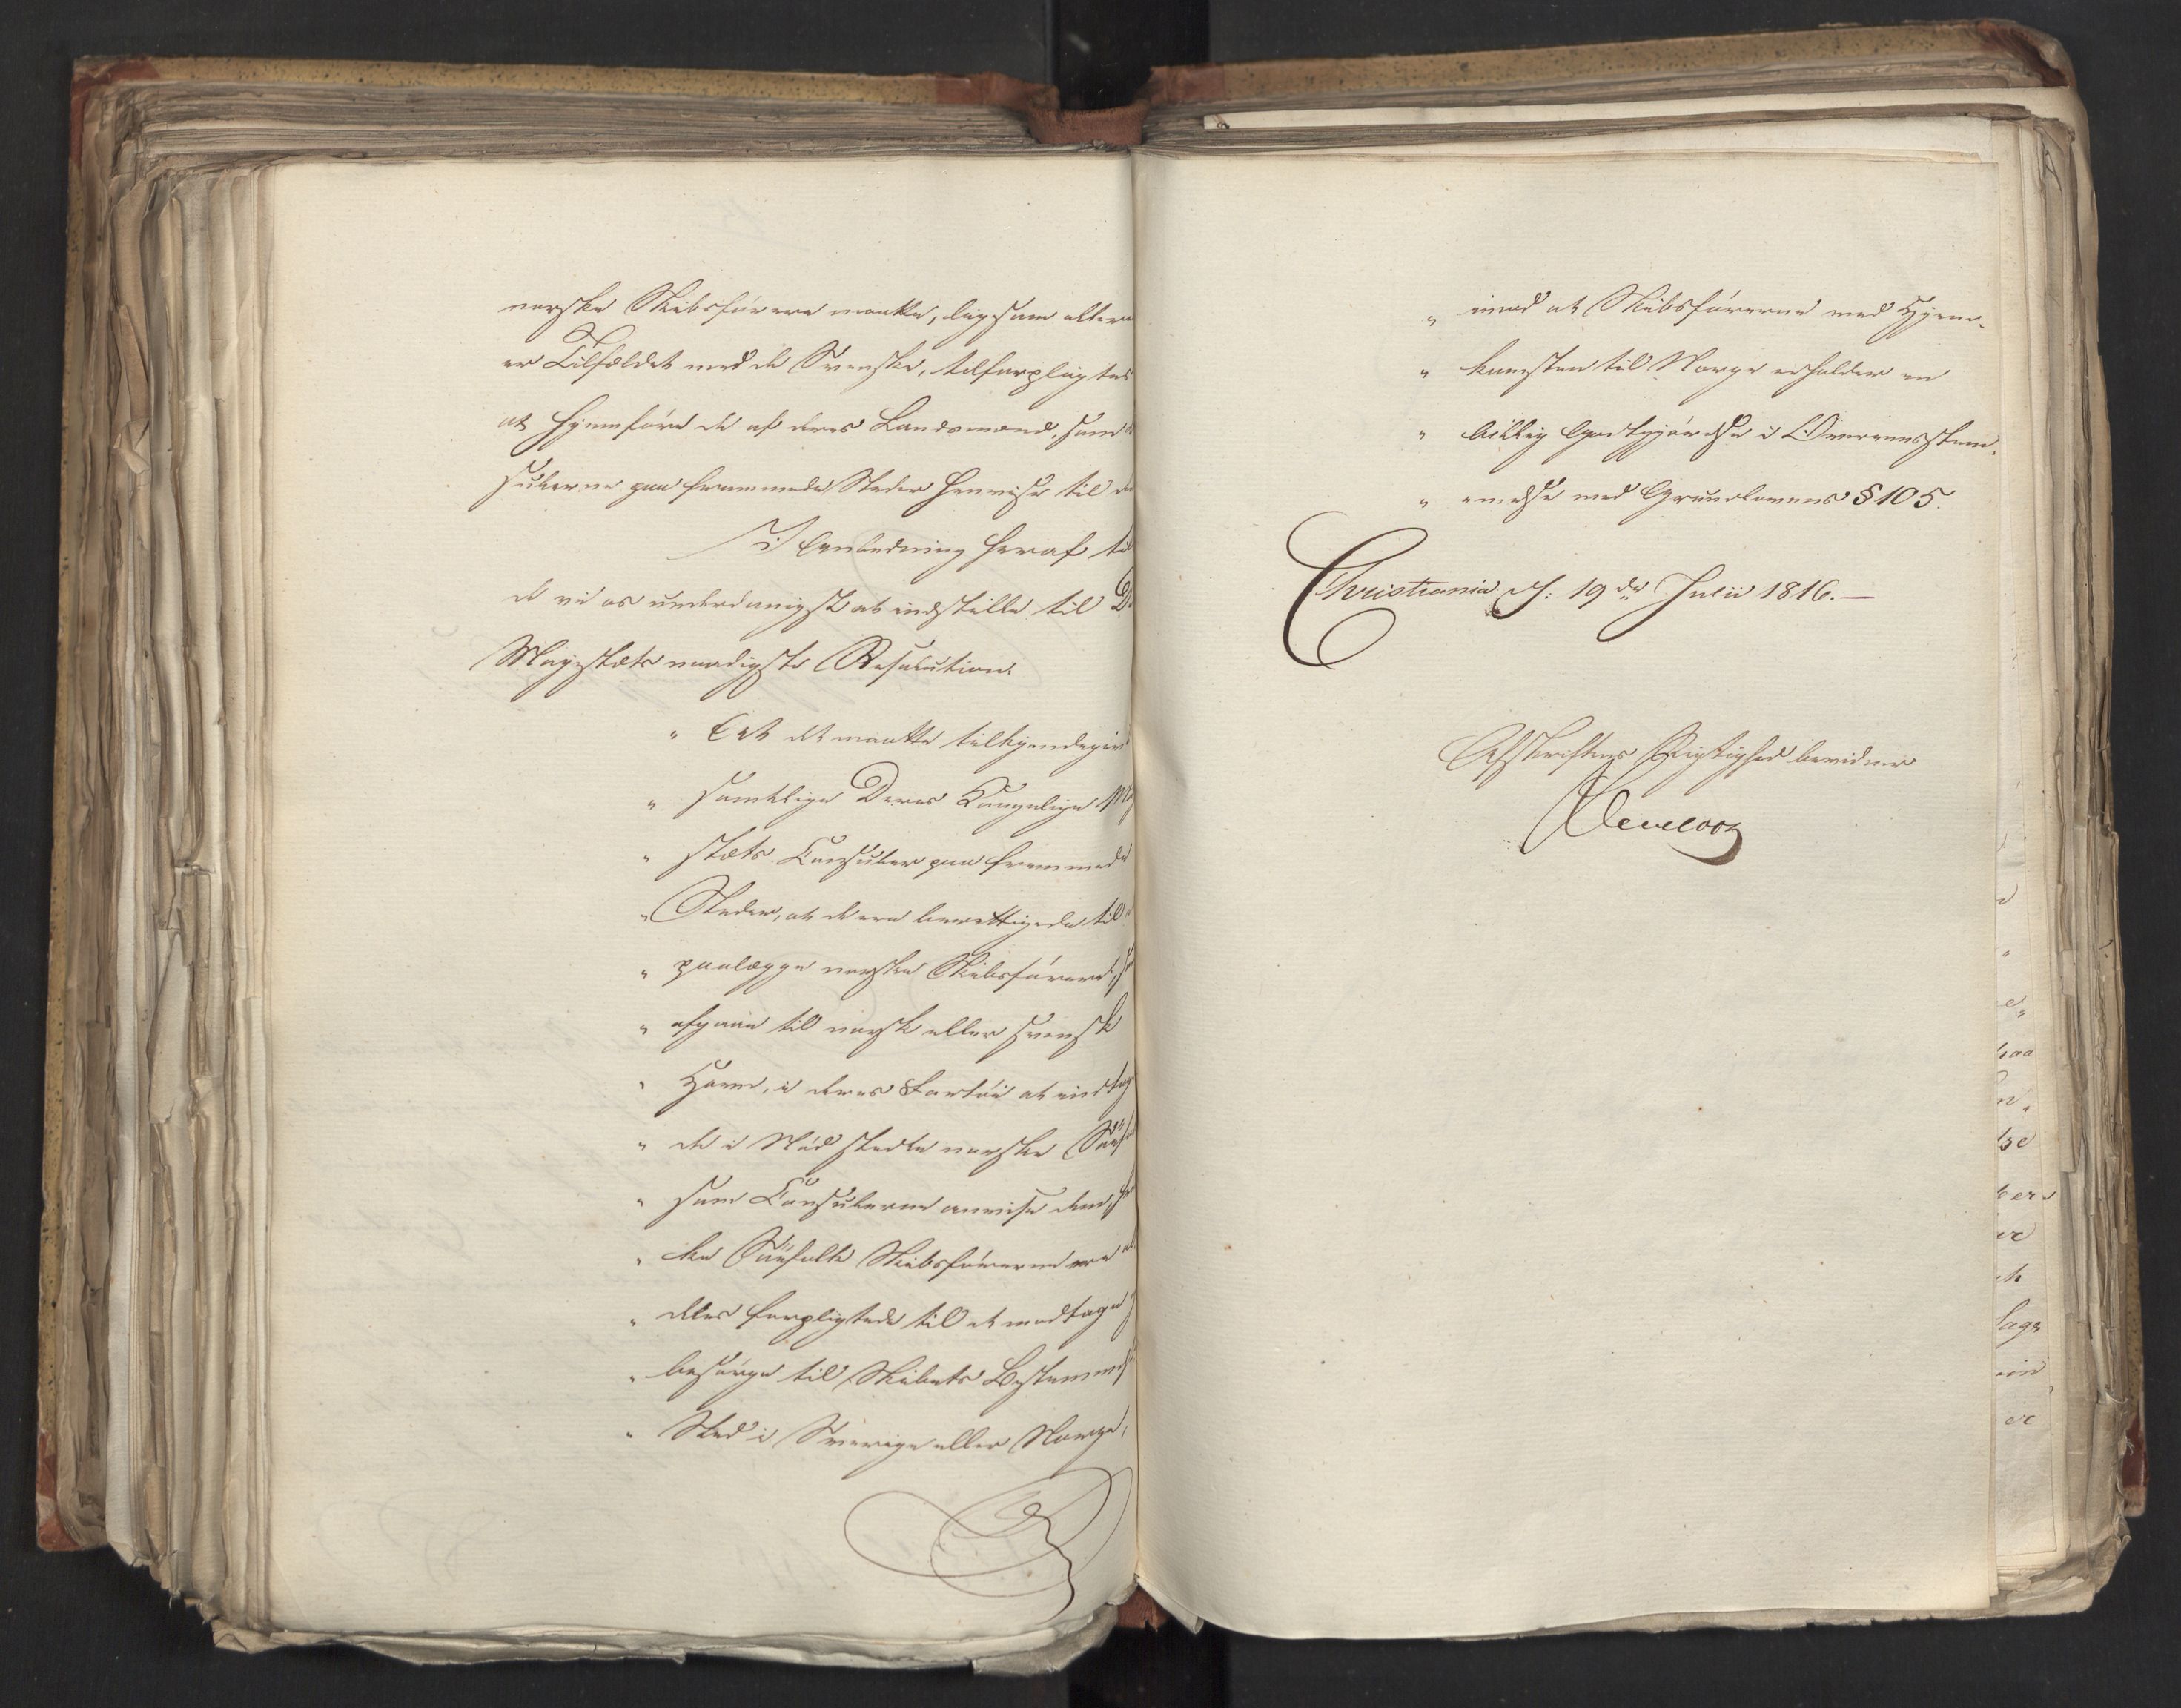 norske Skibsförere maatte, ligesom allere
er Tilfældet med de Svenske, tilforpligtes
at hjemföre de af deres Landsmænd, som
sulerne paa fremmede Steder henvise til de
I Anledning heraf til
de vi os underdanigst at indstille til D
Majestæts naadigste Resolution:
" At det maatte tilkjendegiv
" samtlige Deres Kongelige Maj
" stæts Consuler paa fremmede
" Steder, at de ere berettigede til
" paalægge norske Skibsförere,
" afgaae til norsk eller svensk
" Havn, i deres Fartöi at indtage
" de i Nöd stedte norske Söef
" som Consulerne anvise dem,
" ke Söefolk Skibsförerne ere
" deles forpligtede til at modtage
" besörge til Skibets Bestemmels
" Sted i Sverige eller Norge,
" imod at Skibsförerne ved Hjem-
" komsten til Norge erholder en
" billig Godtgjörelse i Overeensstem-
" melse med Grundlovens § 105.
Christiania d: 19de Julii 1816.—
Afskriftens Rigtighed bevidner